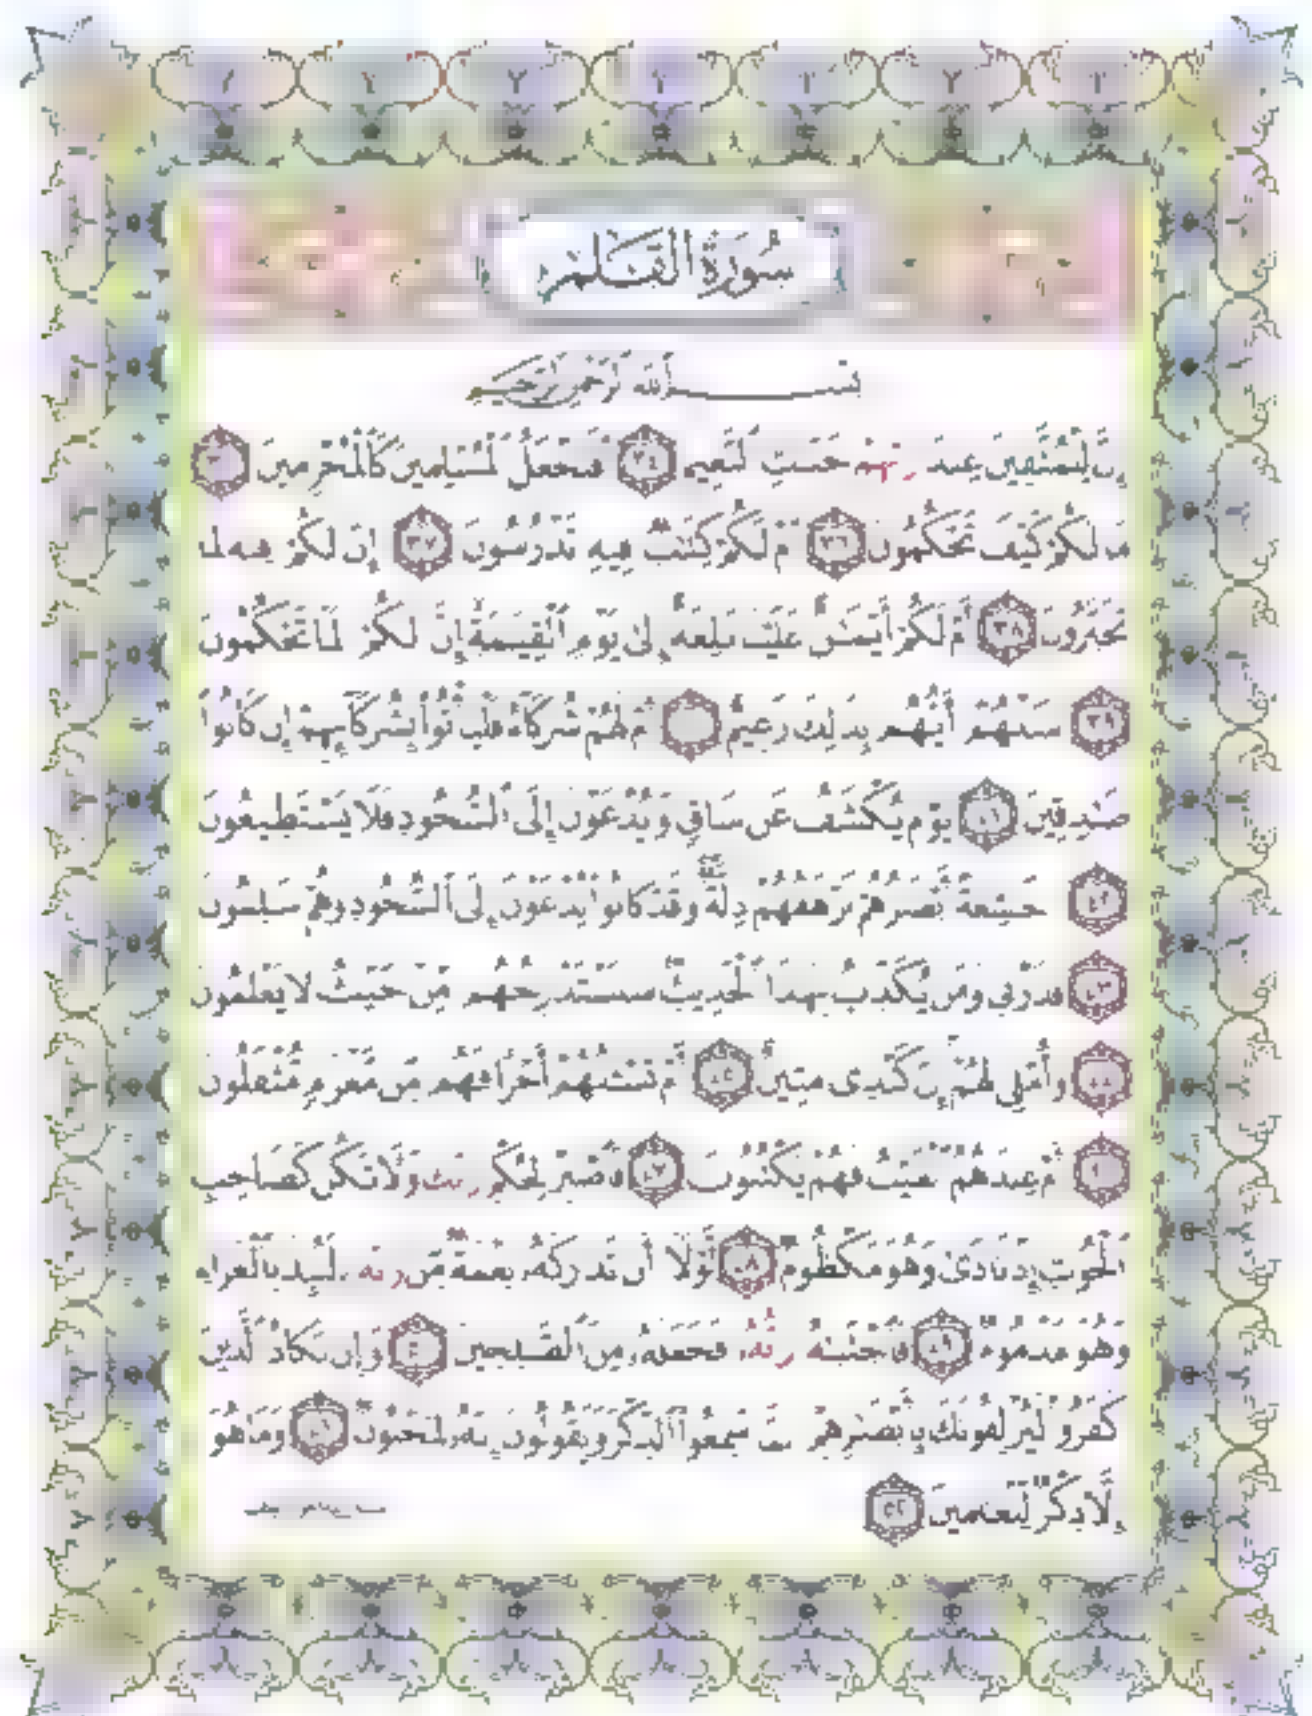 سُورَةُ الْقَلَمِ
بِسْمِ اللَّهِ الرَّحْمَٰنِ الرَّحِيمِ
إِنَّ لِلْمُتَّقِينَ عِندَ رَبِّهِمْ جَنَّاتِ النَّعِيمِ ﴿٣٤﴾ أَفَنَجْعَلُ الْمُسْلِمِينَ كَالْمُجْرِمِينَ ﴿٣٥﴾
مَا لَكُمْ كَيْفَ تَحْكُمُونَ ﴿٣٦﴾ أَمْ لَكُمْ كِتَابٌ فِيهِ تَدْرُسُونَ ﴿٣٧﴾ إِنَّ لَكُمْ فِيهِ لَمَا
تَخَيَّرُونَ ﴿٣٨﴾ أَمْ لَكُمْ أَيْمَانٌ عَلَيْنَا بَالِغَةٌ إِلَىٰ يَوْمِ الْقِيَامَةِ إِنَّ لَكُمْ لَمَا تَحْكُمُونَ
﴿٣٩﴾ سَلْهُمْ أَيُّهُم بِذَٰلِكَ زَعِيمٌ ﴿٤٠﴾ أَمْ لَهُمْ شُرَكَاءُ فَلْيَأْتُوا بِشُرَكَائِهِمْ إِن كَانُوا
صَادِقِينَ ﴿٤١﴾ يَوْمَ يُكْشَفُ عَن سَاقٍ وَيُدْعَوْنَ إِلَى السُّجُودِ فَلَا يَسْتَطِيعُونَ
﴿٤٢﴾ خَاشِعَةً أَبْصَارُهُمْ تَرْهَقُهُمْ ذِلَّةٌ وَقَدْ كَانُوا يُدْعَوْنَ إِلَى السُّجُودِ وَهُمْ سَالِمُونَ
﴿٤٣﴾ فَذَرْنِي وَمَن يُكَذِّبُ بِهَٰذَا الْحَدِيثِ سَنَسْتَدْرِجُهُم مِّنْ حَيْثُ لَا يَعْلَمُونَ
﴿٤٤﴾ وَأُمْلِي لَهُمْ إِنَّ كَيْدِي مَتِينٌ ﴿٤٥﴾ أَمْ تَسْأَلُهُمْ أَجْرًا فَهُم مِّن مَّغْرَمٍ مُّثْقَلُونَ
﴿٤٦﴾ أَمْ عِندَهُمُ الْغَيْبُ فَهُمْ يَكْتُبُونَ ﴿٤٧﴾ فَاصْبِرْ لِحُكْمِ رَبِّكَ وَلَا تَكُن كَصَاحِبِ
الْحُوتِ إِذْ نَادَىٰ وَهُوَ مَكْظُومٌ ﴿٤٨﴾ لَّوْلَا أَن تَدَارَكَهُ نِعْمَةٌ مِّن رَّبِّهِ لَنُبِذَ بِالْعَرَاءِ
وَهُوَ مَذْمُومٌ ﴿٤٩﴾ فَاجْتَبَاهُ رَبُّهُ فَجَعَلَهُ مِنَ الصَّالِحِينَ ﴿٥٠﴾ وَإِن يَكَادُ الَّذِينَ
كَفَرُوا لَيُزْلِقُونَكَ بِأَبْصَارِهِمْ لَمَّا سَمِعُوا الذِّكْرَ وَيَقُولُونَ إِنَّهُ لَمَجْنُونٌ ﴿٥١﴾ وَمَا هُوَ
إِلَّا ذِكْرٌ لِّلْعَالَمِينَ ﴿٥٢﴾